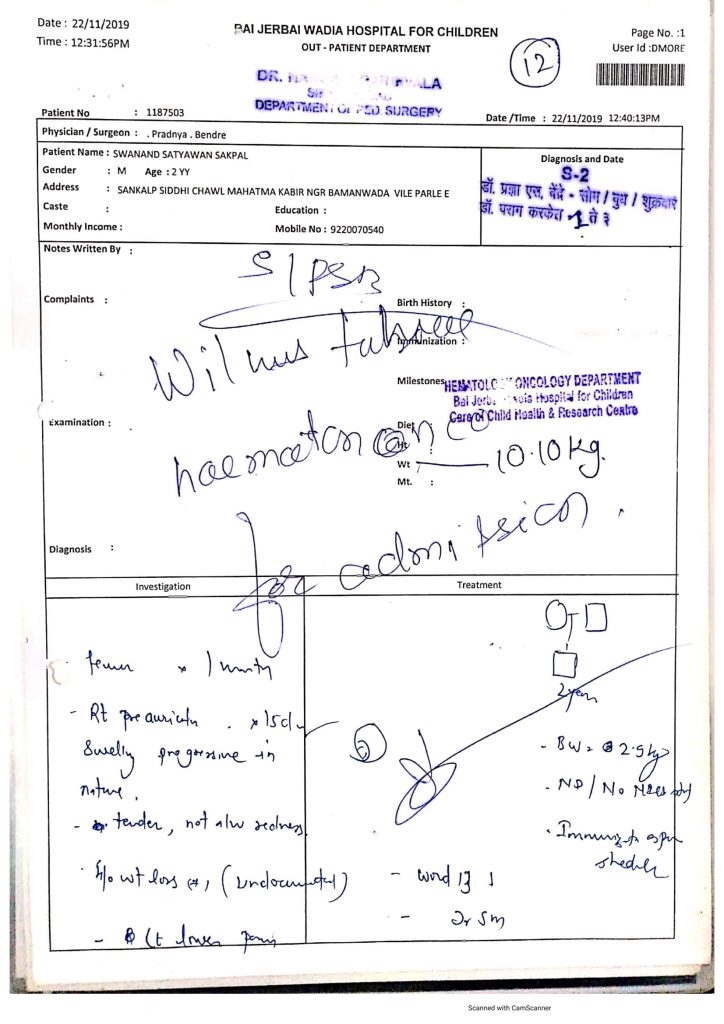 Date : 22/11/2019
Time : 12:31:56PM
BAI JERBAI WADIA HOSPITAL FOR CHILDREN
OUT - PATIENT DEPARTMENT
Page No. :1
User Id :DMORE
12
DR.
DEPARTMENT OF PED SURGERY
Patient No : 1187503
Date /Time : 22/11/2019 12:40:13PM
Physician / Surgeon : . Pradnya . Bendre
Patient Name : SWANAND SATYAWAN SAKPAL
Gender : M Age : 2 YY
Address : SANKALP SIDDHI CHAWL MAHATMA KABIR NGR BAMANWADA VILE PARLE E
Caste : Education :
Monthly Income : Mobile No : 9220070540
Diagnosis and Date
S-2
डॉ. प्रज्ञा एस. बेंद्रे - सोम / बुध / शुक्रवार
डॉ. पराग करकेरा - 1 ते ३
Notes Written By :
S/P SB
Complaints :
Birth History :
Wilmus
Immunization :
Milestones
HEMATOLOGY ONCOLOGY DEPARTMENT
Bai Jerbai Wadia Hospital for Children
Care of Child Health & Research Centre
Examination :
Diet
Ht
haematon onco
Wt 10.10 kg.
Mt. :
for admission.
Diagnosis :
Investigation
Treatment
fever x 1 month
2 year
- Rt preauricular x 15d
Swelling progressive in
nature.
- tender, not a/w redness
h/o wt loss +, (undocumented)
- Lt lower pain
- BW = 2.5 kg
- ND / No NICU stay
- Immunized as per
shedule
- word 1
Scanned with CamScanner